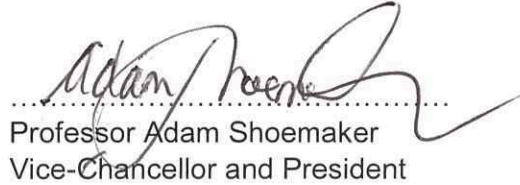 Adam Shoemaker
Professor Adam Shoemaker
Vice-Chancellor and President